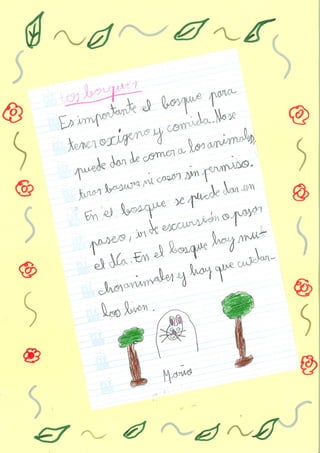 Los bosques
Es importante el bosque para
tener oxígeno y comida. No se
puede dar de comer a los animales,
tirar basura, ni cazar sin permiso.
En el bosque se puede dar un
paseo, ir de excursión o pasar
el día. En el bosque hay mu-
chos animales y hay que cuidar-
los bien.
Mario